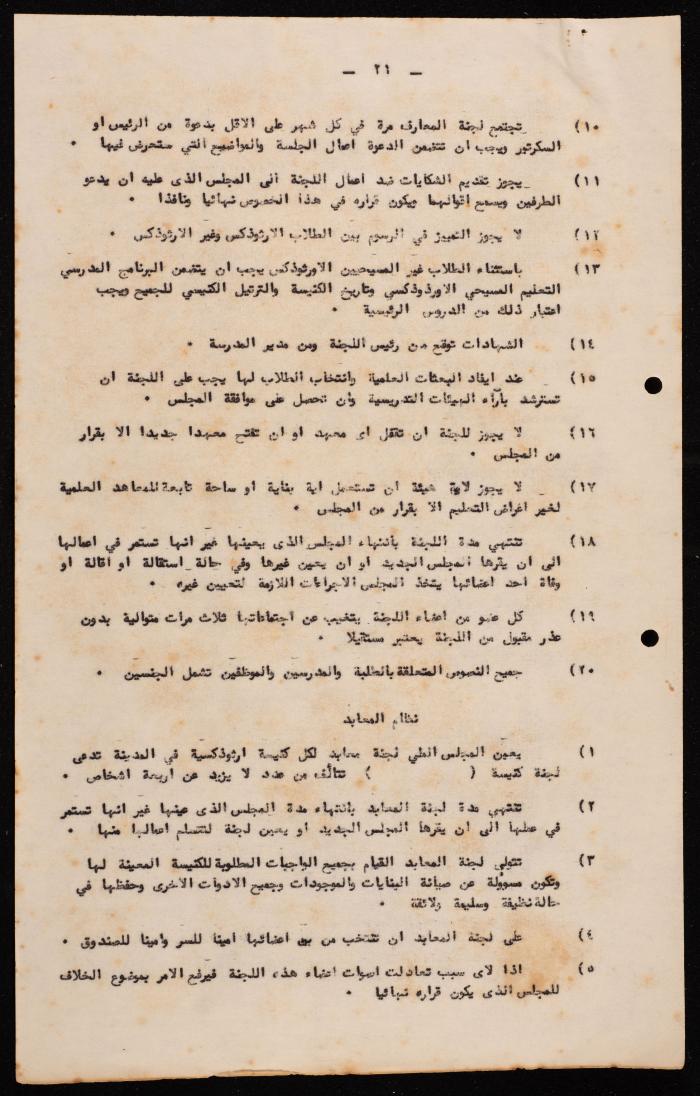 — ٢١ —
١٠) تجتمع لجنة المعارف مرة في كل شهر على الاقل بدعوة من الرئيس او
السكرتير ويجب ان تتضمن الدعوة اعمال الجلسة والمواضيع التي ستعرض فيها ٠
١١) يجوز تقديم الشكايات ضد اعمال اللجنة الى المجلس الذى عليه ان يدعو
الطرفين ويسمع اقوالهما ويكون قراره في هذا الخصوص نهائيا ونافذا ٠
١٢) لا يجوز التمييز في الرسوم بين الطلاب الارثوذكس وغير الارثوذكس ٠
١٣) باستثناء الطلاب غير المسيحيين الاورثوذكس يجب ان يتضمن البرنامج المدرسي
التعليم المسيحي الاورذوذكسي وتاريخ الكنيسة والترتيل الكنيسي للجميع ويجب
اعتبار ذلك من الدروس الرئيسية ٠
١٤) الشهادات توقع من رئيس اللجنة ومن مدير المدرسة ٠
١٥) عند ايفاد البعثات العلمية وانتخاب الطلاب لها يجب على اللجنة ان
تسترشد بآراء الهيئات التدريسية وان تحصل على موافقة المجلس ٠
١٦) لا يجوز للجنة ان تقفل اى معهد او ان تفتح معهدا جديدا الا بقرار
من المجلس ٠
١٧) لا يجوز لاية هيئة ان تستعمل اية بناية او ساحة تابعة للمعاهد العلمية
لغير اغراض التعليم الا بقرار من المجلس ٠
١٨) تنتهي مدة اللجنة بانتهاء المجلس الذى يعينها غير انها تستمر في اعمالها
الى ان يقرها المجلس الجديد او ان يعين غيرها وفي حالة استقالة او اقالة او
وفاة احد اعضائها يتخذ المجلس الاجراءات اللازمة لتعيين غيره ٠
١٩) كل عضو من اعضاء اللجنة يتغيب عن اجتماعاتها ثلاث مرات متوالية بدون
عذر مقبول من اللجنة يعتبر مستقيلا ٠
٢٠) جميع النصوص المتعلقة بالطلبة والمدرسين والموظفين تشمل الجنسين ٠
نظام المعابد
١) يعين المجلس الملي لجنة معابد لكل كنيسة ارثوذكسية في المدينة تدعى
لجنة كنيسة ( ) تتألف من عدد لا يزيد عن اربعة اشخاص ٠
٢) تنتهي مدة لجنة المعابد بانتهاء مدة المجلس الذى عينها غير انها تستمر
في عملها الى ان يقرها المجلس الجديد او يعين لجنة لتتسلم اعمالها منها ٠
٣) تتولى لجنة المعابد القيام بجميع الواجبات المطلوبة للكنيسة المعينة لها
وتكون مسوولة عن صيانة البنايات والموجودات وجميع الادوات الاخرى وحفظها في
حالة نظيفة وسليمة ولائقة ٠
٤) على لجنة المعابد ان تنتخب من بين اعضائها امينا للسر وامينا للصندوق ٠
٥) اذا لاى سبب تعادلت اصوات اعضاء هذه اللجنة فيرفع الامر بموضوع الخلاف
للمجلس الذى يكون قراره نهائيا ٠